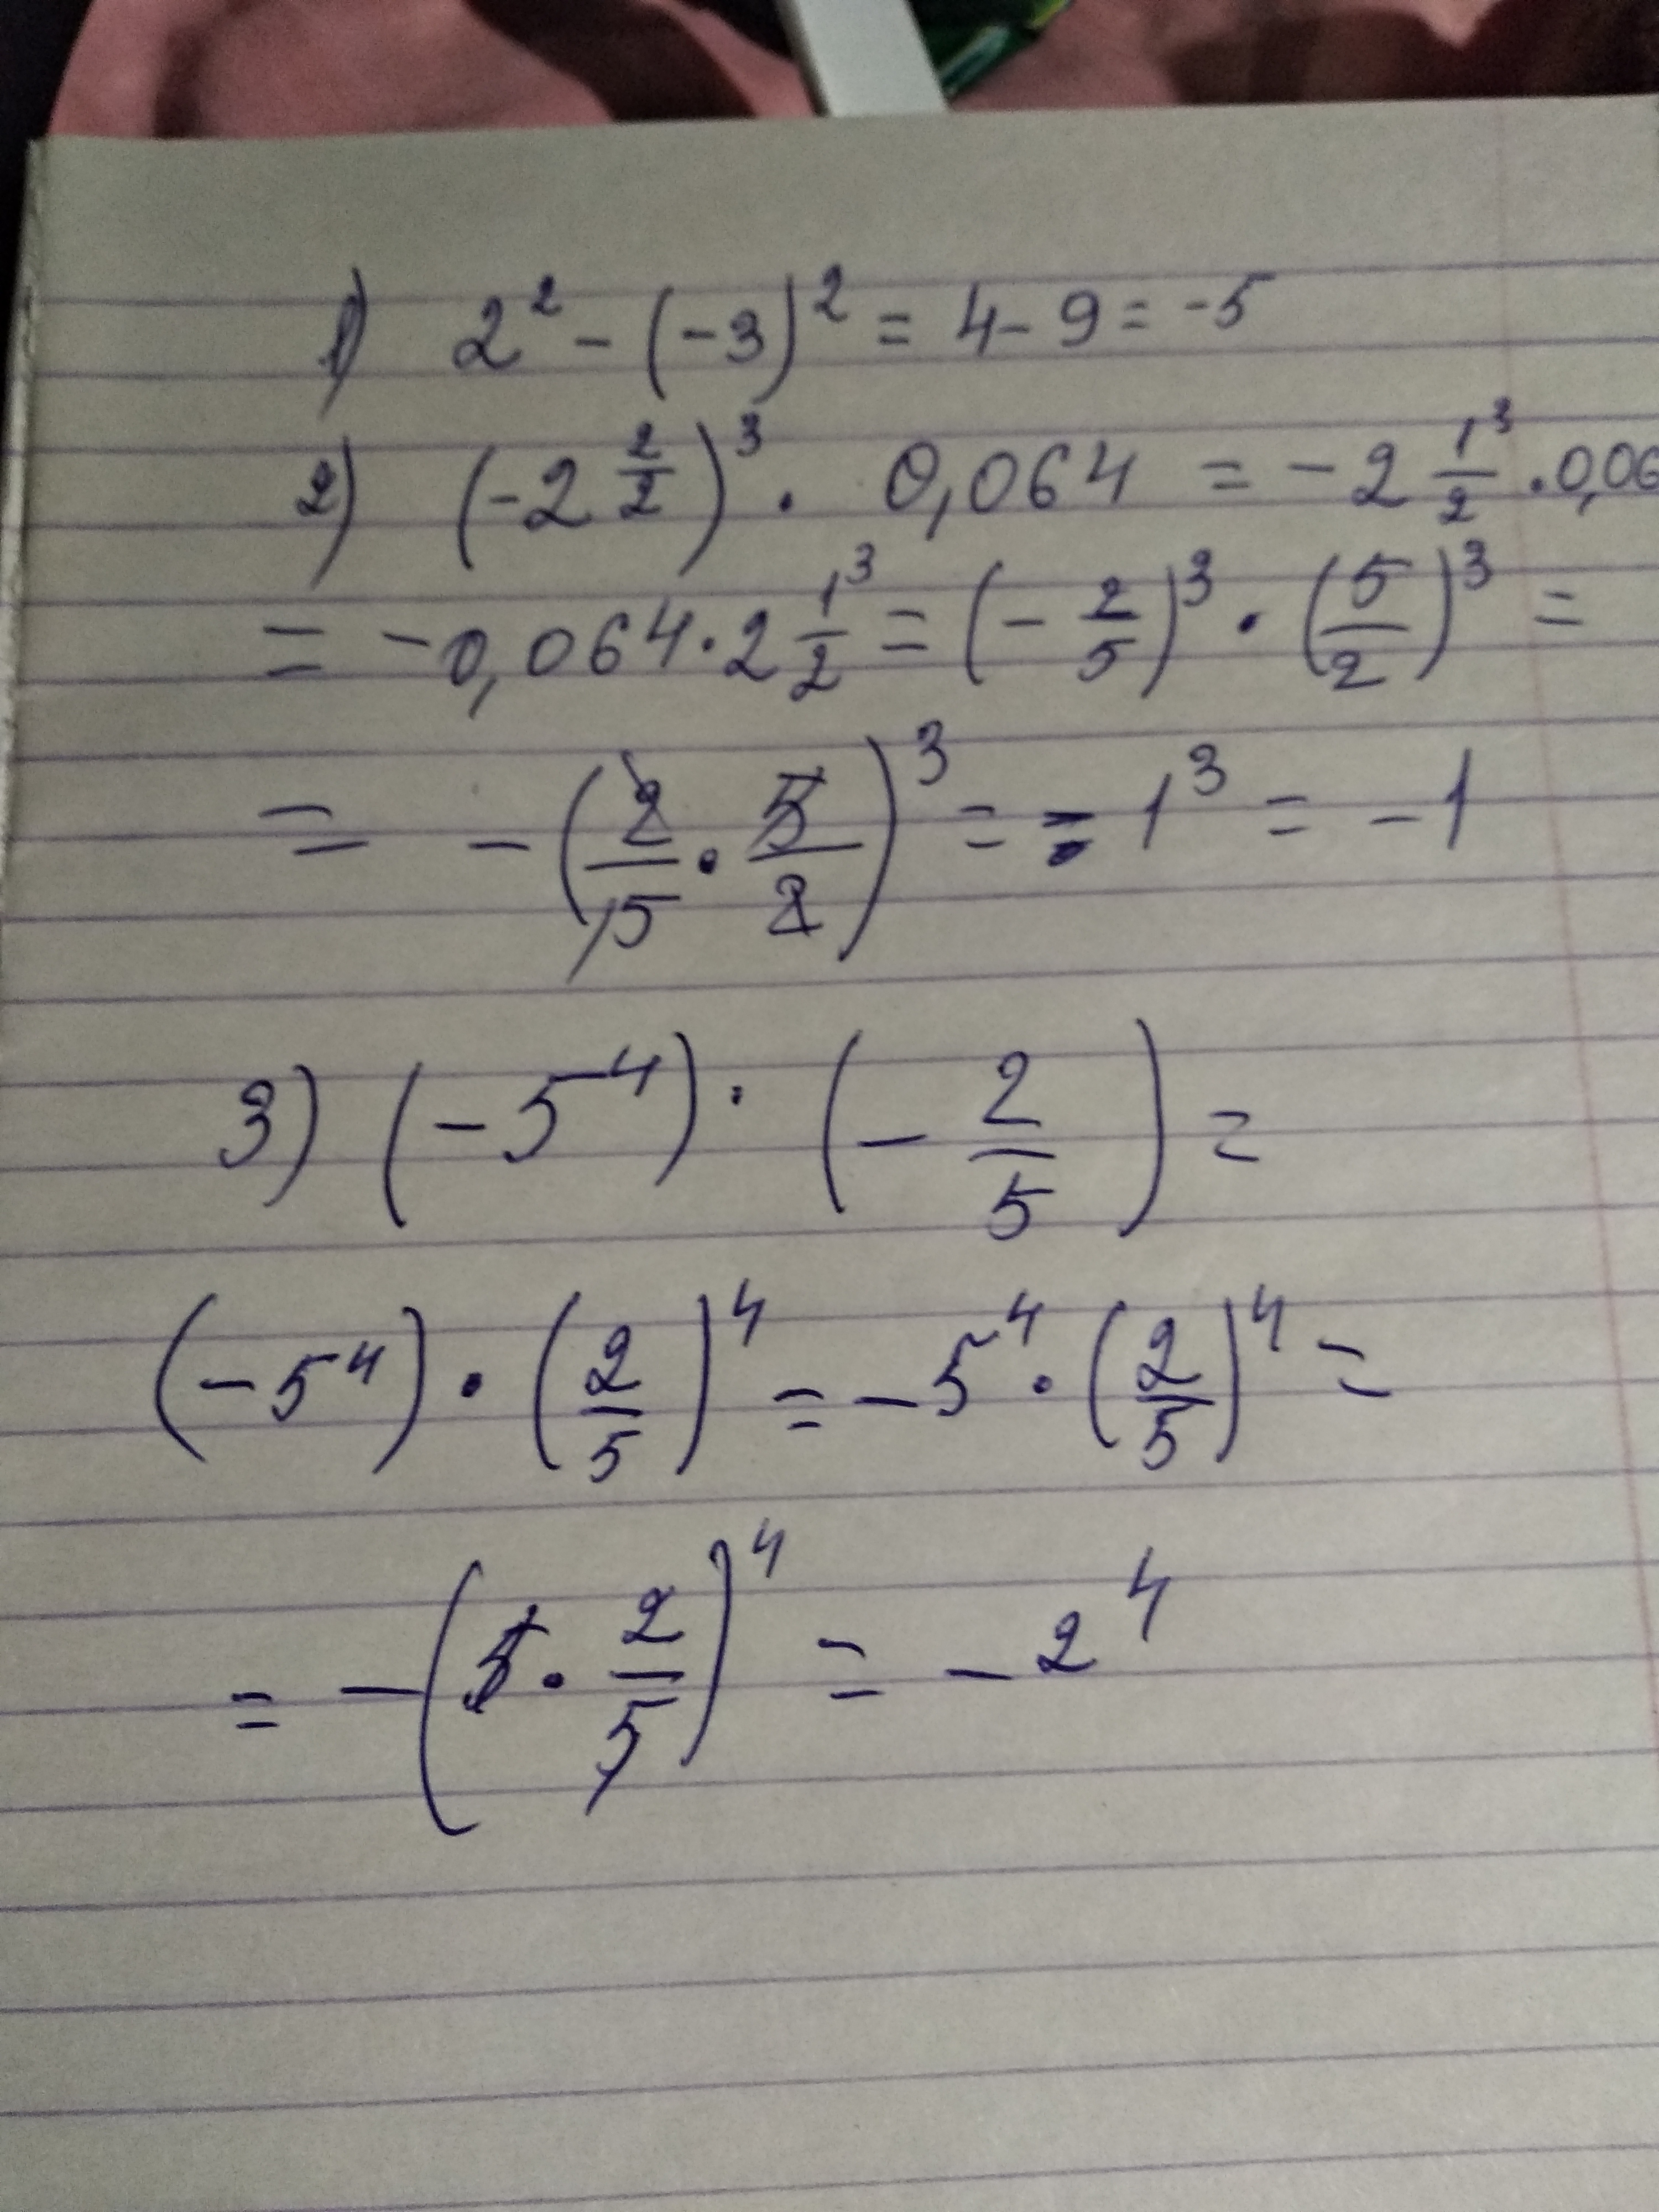 1) 2² - (-3)² = 4 - 9 = -5
2) (-2 2/2)³ · 0,064 = -2 1³/2 · 0,06
= -0,064 · 2 1³/2 = (- 2/5)³ · (5/2)³ =
= - (2/5 · 5/2)³ = - 1³ = -1
3) (-5⁴) · (- 2/5) =
(-5⁴) · (2/5)⁴ = -5⁴ · (2/5)⁴ =
= - (5 · 2/5)⁴ = -2⁴